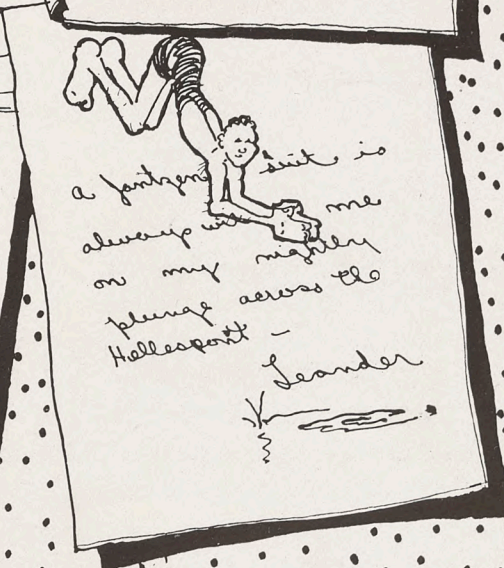 a jantzen suit is
always with me
on my nightly
plunge across the
Hellespont –
Leander